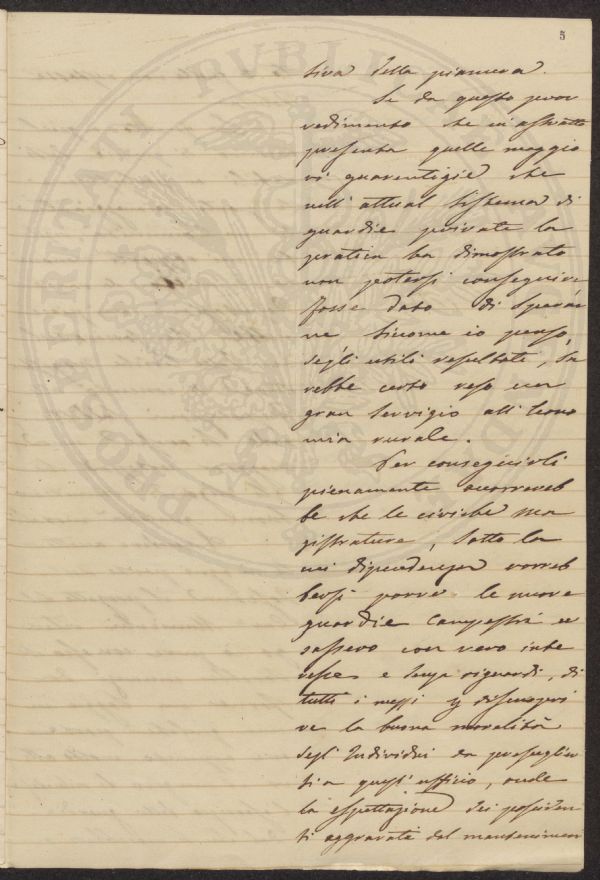 5
tiva della pianura.
Se da questo prov
vedimento che in astratto
presenta quelle maggio
ri guarentigie che
nell'attual sistema di
guardie private la
pratica ha dimostrato
non potersi conseguire
fosse dato di sperar
ne siccome io penso,
degli utili resultati, sa
rebbe certo reso un
gran servigio all'econo
mia rurale.
Per conseguirli
pienamente occorrereb
be che le civiche ma
gistrature, sotto la
cui dipendenza vorreb
bersi porre le nuove
guardie campestri u
sassero con vero inte
resse e senza riguardi, di
tutti i mezzi p discuopri
re la buona moralità
degl'Individui da prescieglier
si a quest'uffizio, onde
la espettazione dei possiden
ti aggravati del mantenimen
PROSPERITATI PVBLI